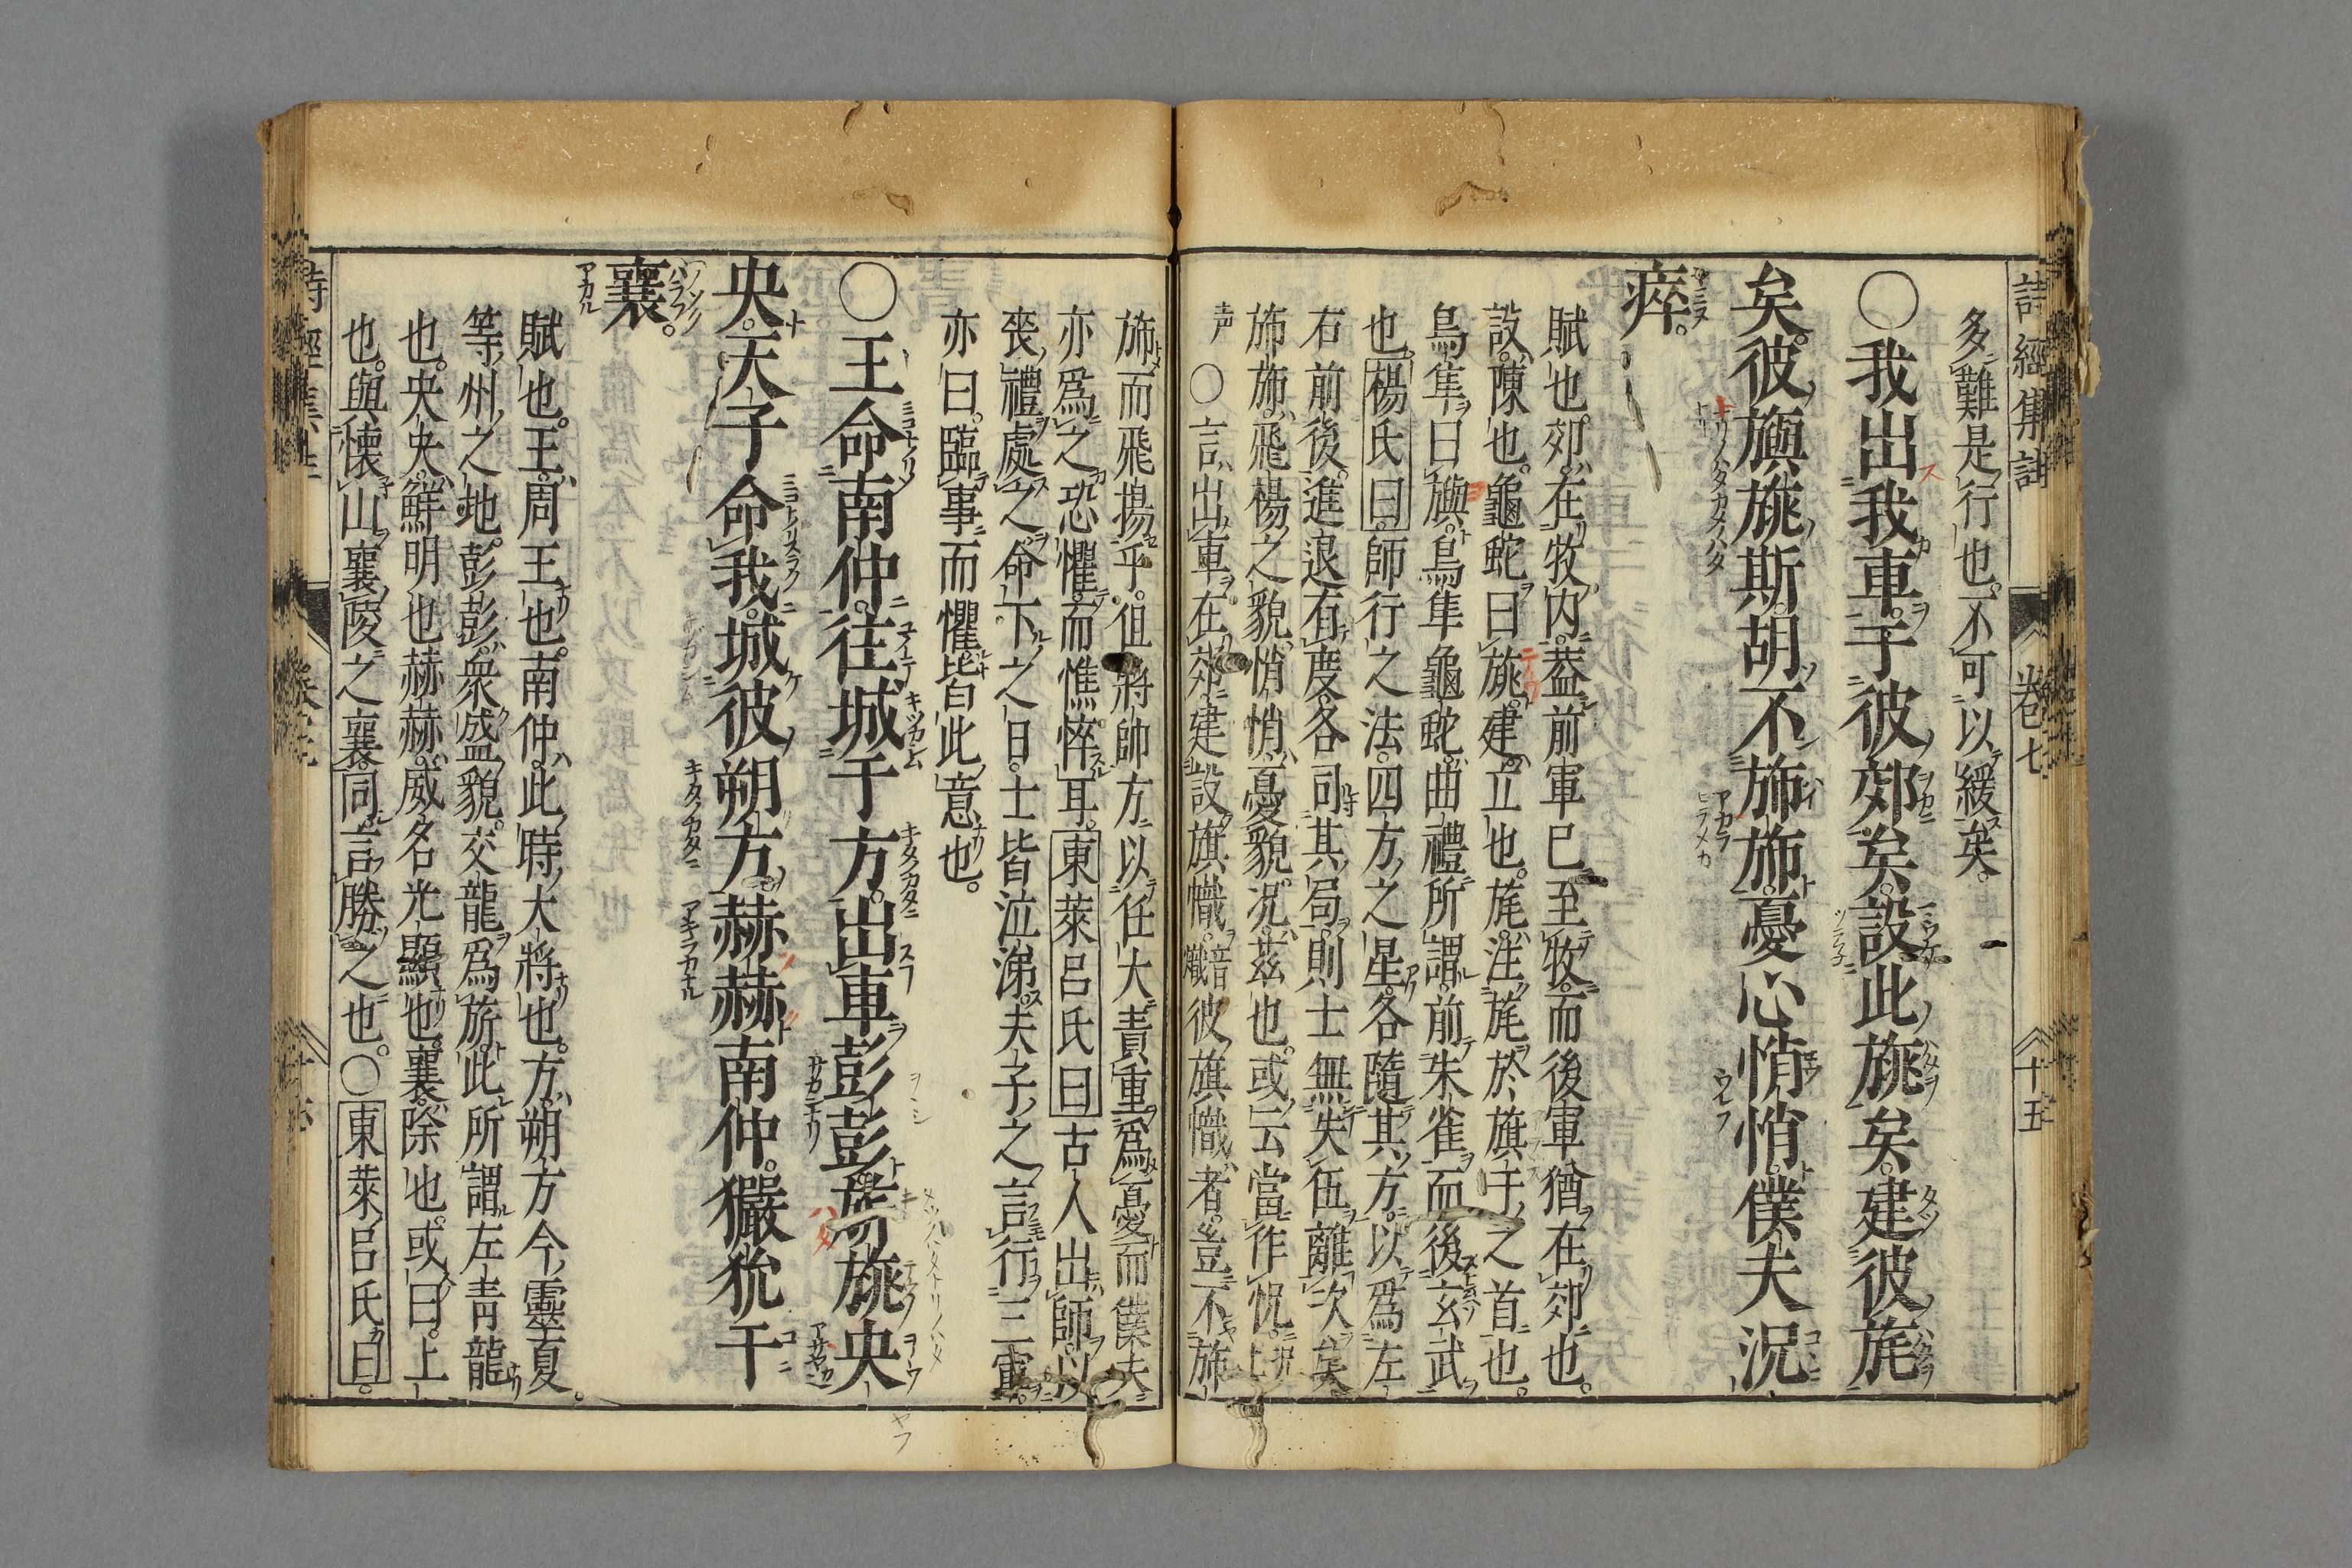 詩經集註 卷七 十五
多難是行也不可以緩矣
○我出我車于彼郊矣設此旐矣建彼旄
矣彼旟旐斯胡不旆旆憂心悄悄僕夫況
瘁
賦也郊在牧內蓋前軍已至牧而後軍猶在郊也
設陳也龜蛇曰旐建立也旄注旄於旗干之首也
鳥隼曰旟鳥隼龜蛇曲禮所謂前朱雀而後玄武
也楊氏曰師行之法四方之星各隨其方以爲左
右前後進退有度各司其局則士無失伍離次矣
旆旆飛揚之貌悄悄憂貌況茲也或云當作怳
声○言出車在郊建設旗幟彼旗幟者豈不旆
旆而飛揚乎但將帥方以任大責重爲憂而僕夫
亦爲之恐懼而憔悴耳東萊呂氏曰古人出師以
喪禮處之命下之日士皆泣涕夫子之言行三軍
亦曰臨事而懼皆此意也
○王命南仲往城于方出車彭彭旂旐央
央天子命我城彼朔方赫赫南仲玁狁于
襄
賦也王周王也南仲此時大將也方朔方今靈夏
等州之地彭彭衆盛貌交龍爲旂此所謂左青龍
也央央鮮明也赫赫威名光顯也襄除也或曰上
也與懷山襄陵之襄同言勝之也○東萊呂氏曰